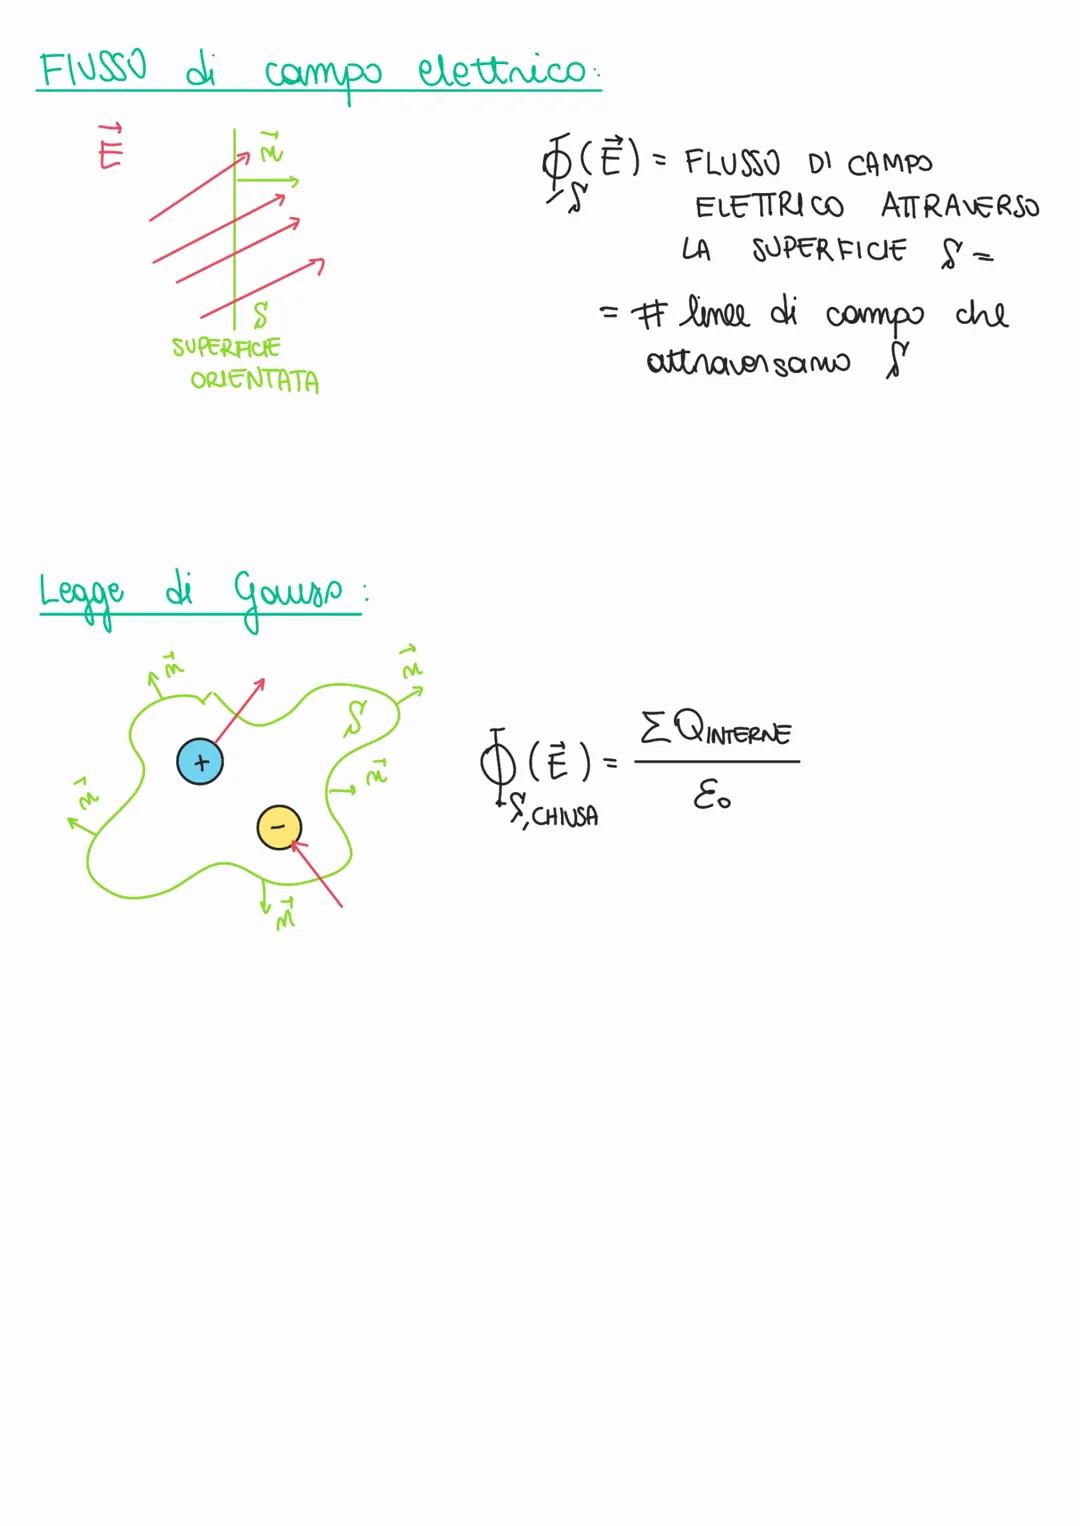 FlUSSO di campo elettrico:
E⃗
n⃗
S
SUPERFICIE
ORIENTATA
Φ_S(E⃗) = FLUSSO DI CAMPO
ELETTRICO ATTRAVERSO
LA SUPERFICIE S =
= # linee di campo che
attraversano S
Legge di Gauss:
n⃗
n⃗
S
+
n⃗
n⃗
-
n⃗
Φ_S,CHIUSA(E⃗) = ΣQ_INTERNE / ε₀